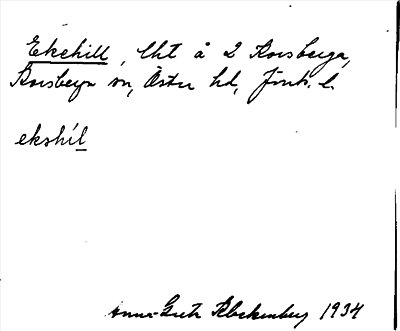 Ekehill, lht å 2 Korsberga,
Korsberga sn, Östra hd, Jönk. l.
ekshil
Anna-Greta Blackenberg 1934